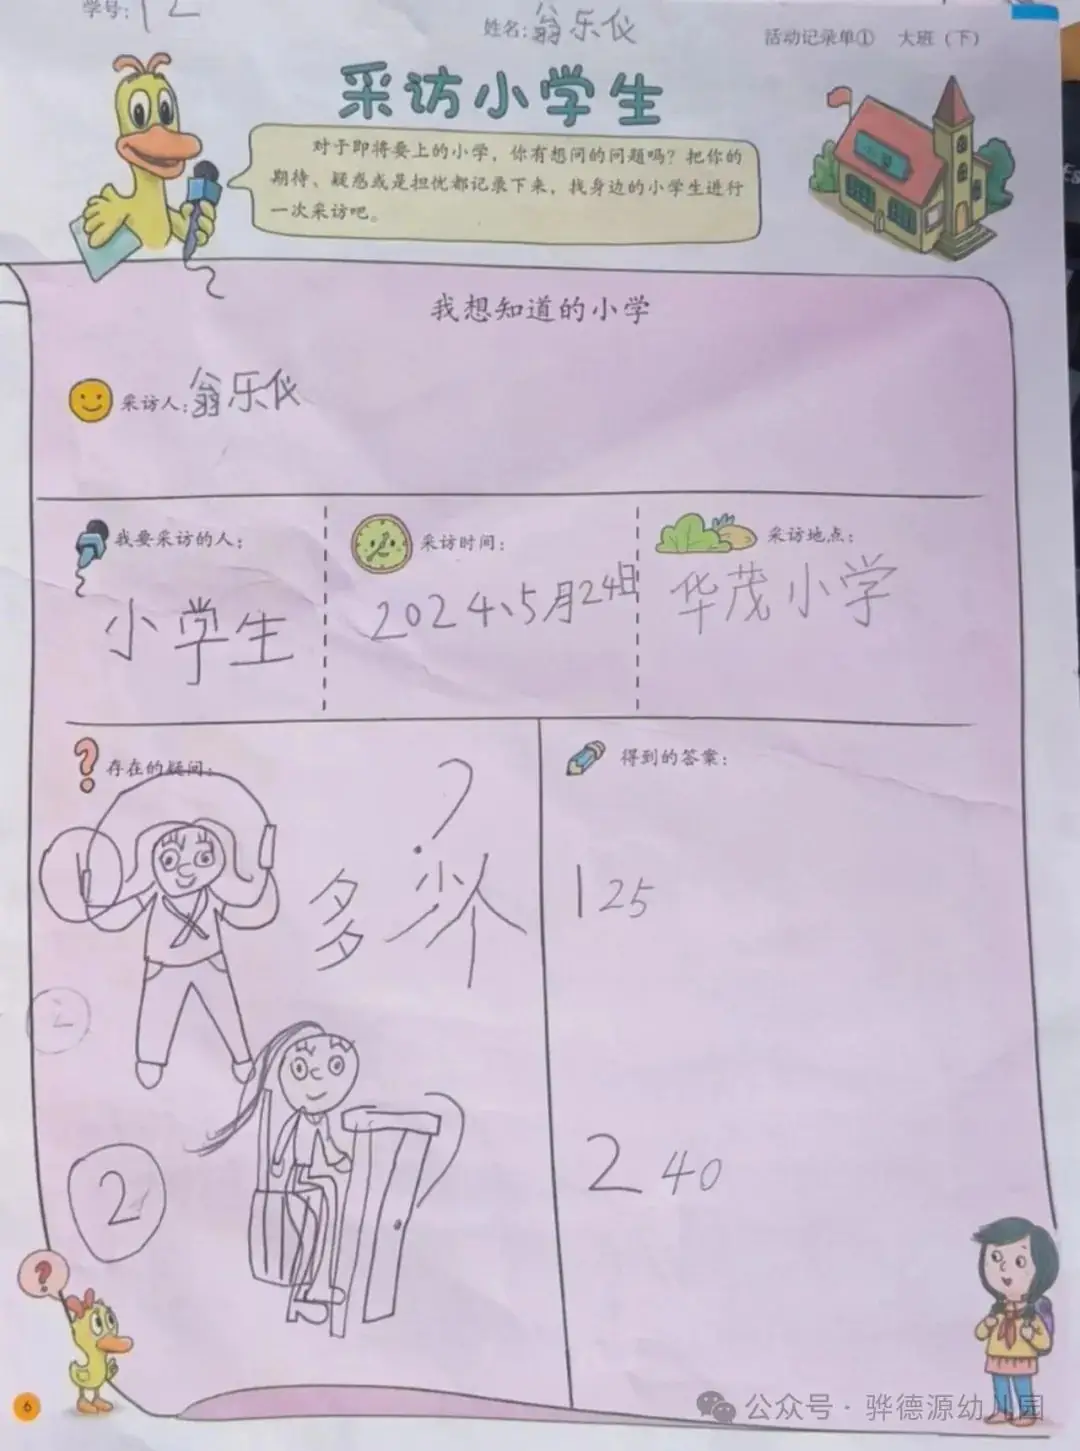 学号: 12
姓名:翁乐仪
活动记录单① 大班（下）
采访小学生
对于即将要上的小学，你有想问的问题吗？把你的
期待、疑惑或是担忧都记录下来，找身边的小学生进行
一次采访吧。
小学
我想知道的小学
采访人:翁乐仪
我要采访的人：
小学生
采访时间：
2024、5月24日
采访地点：
华茂小学
存在的疑问：
?
多少个
1
2
2
?
得到的答案：
1 25
2 40
?
6
公众号·骅德源幼儿园